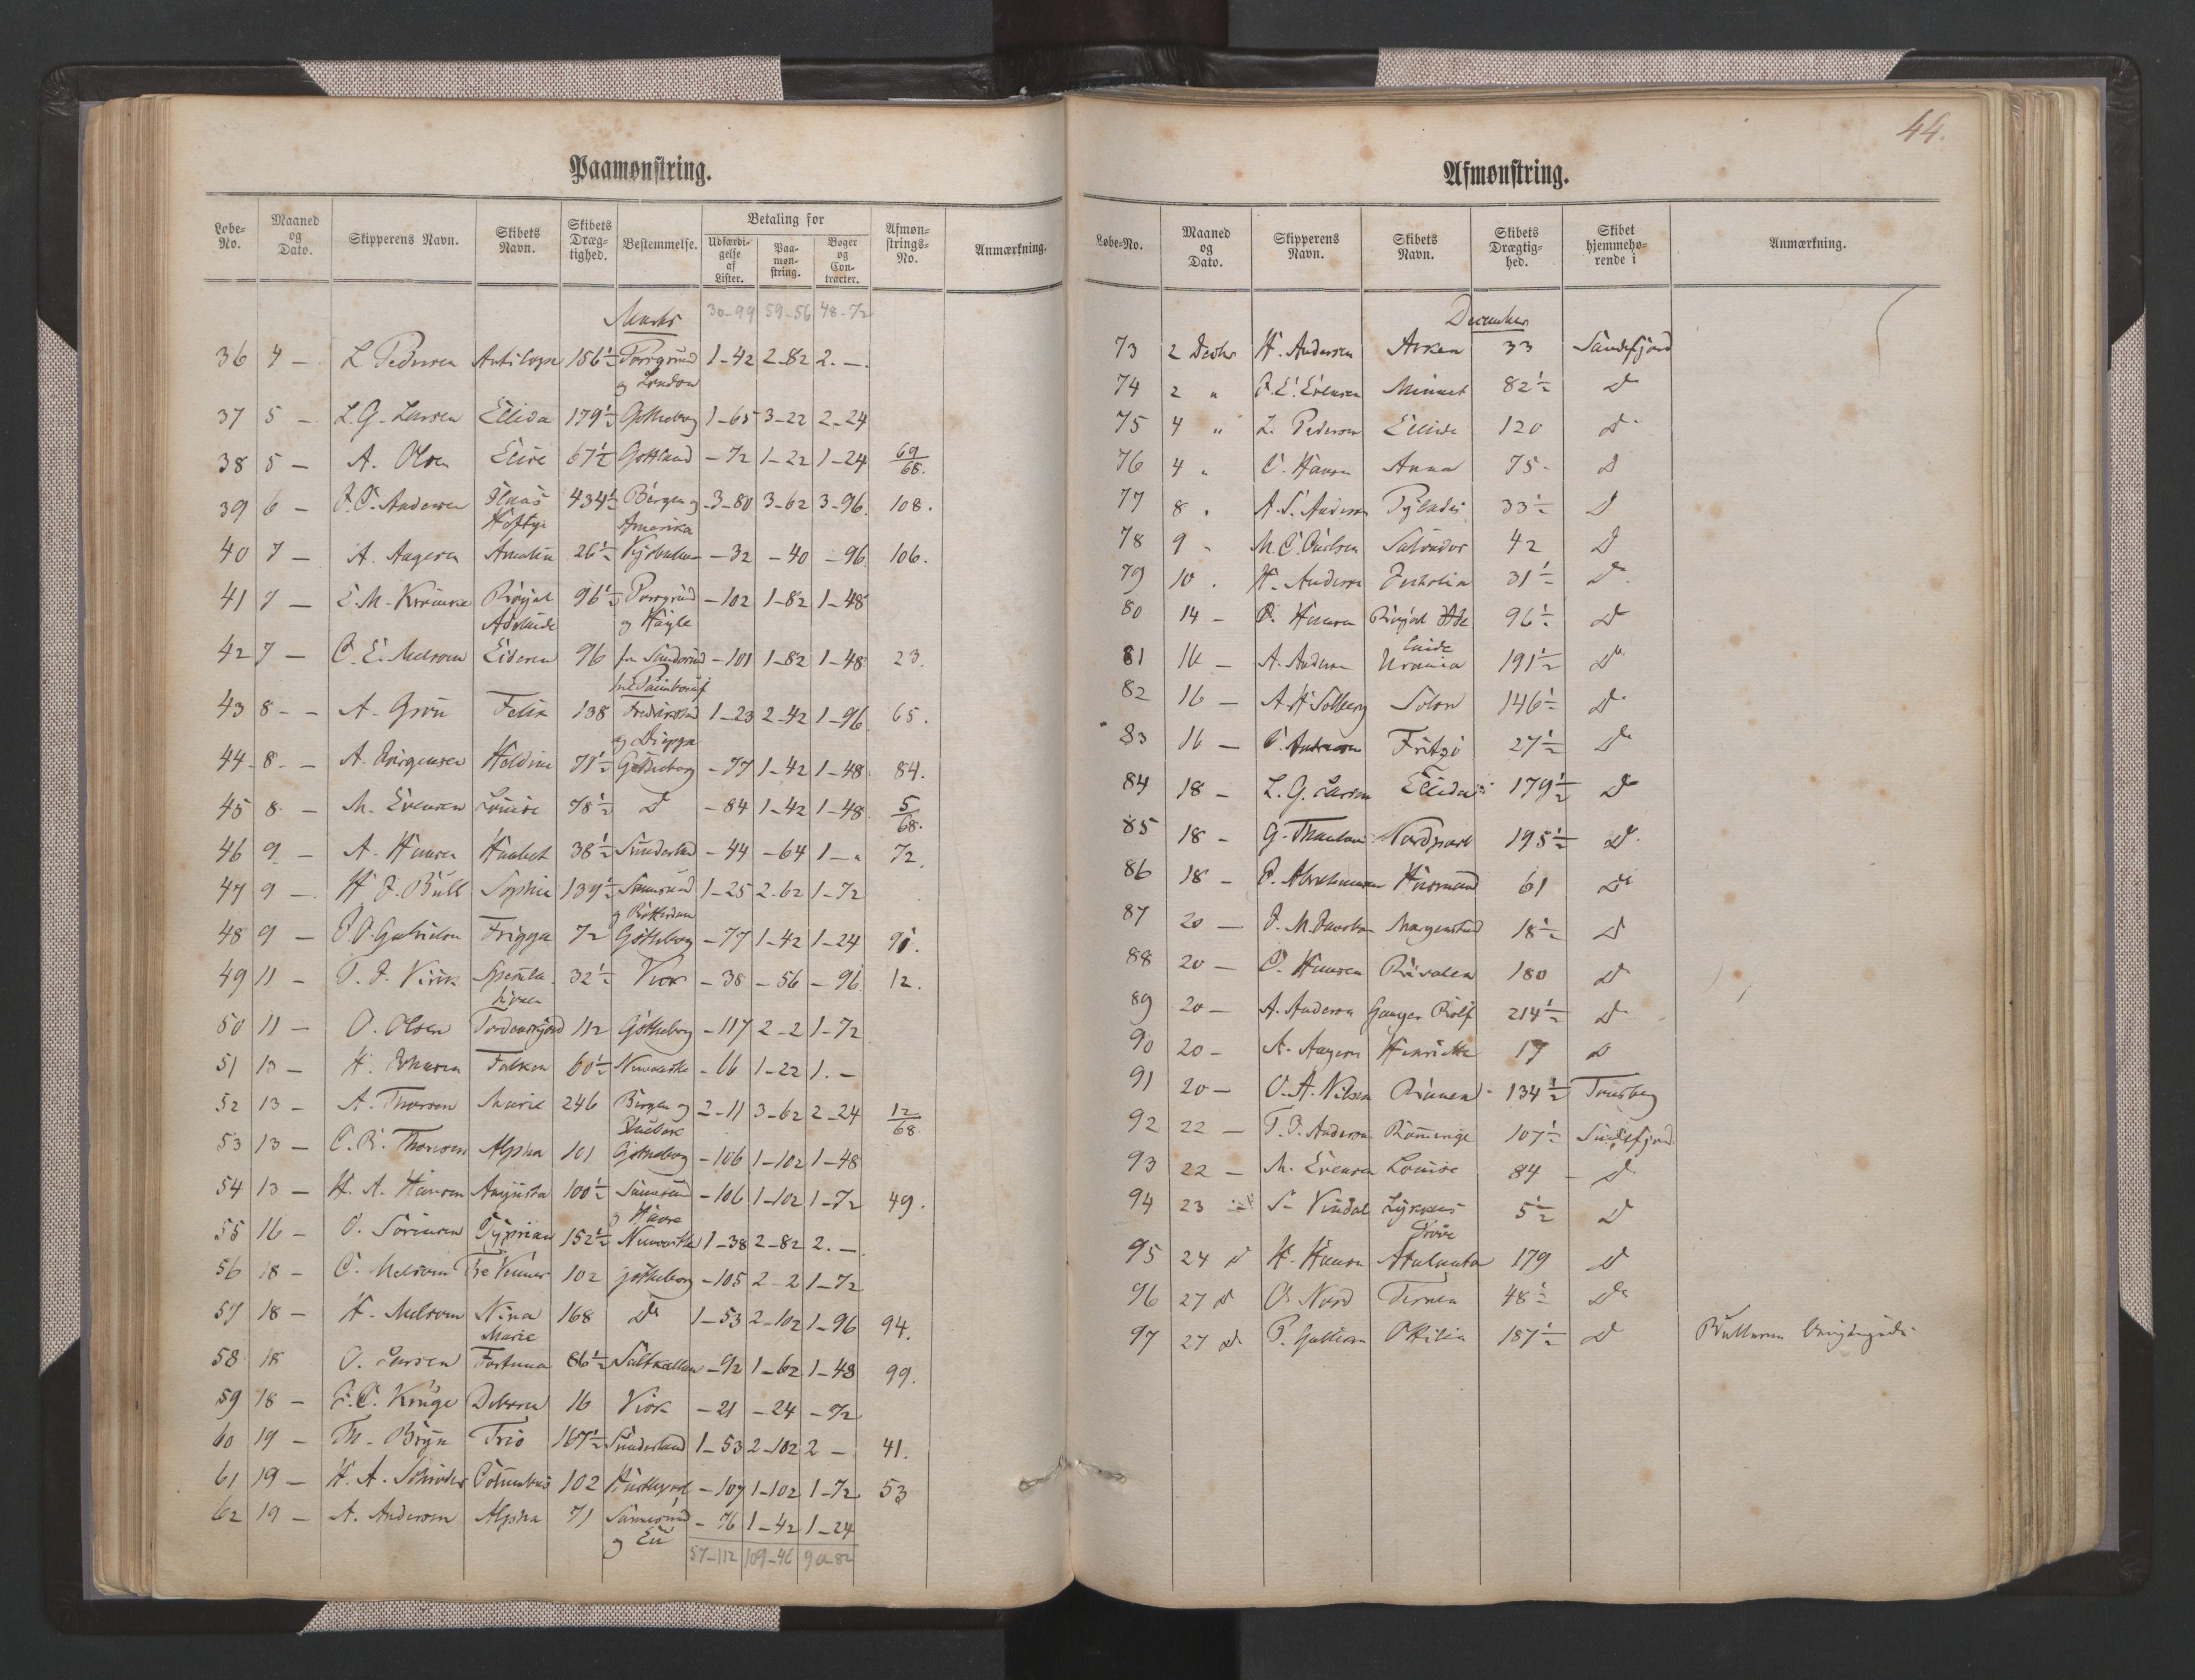 44.
Paamønstring.
Løbe-No. Maaned og Dato. Skipperens Navn. Skibets Navn. Skibets Dræg-tighed. Bestemmelse. Betaling for Udfærdi-gelse af Lister. Paa-møn-string. Bøger og Con-tracter. Afmøn-strings-No. Anmærkning.
Marts 30-99 59-56 48-72
36 4 — L. Pedersen Antilope 156½ Porsgrund 1-42 2-82 2.—.
og London
37 5 — L. G. Larsen Ellida 179½ Gøtheborg 1-65 3-22 2-24
38 5 — A. Olsen Elise 67½ Gottland -72 1-22 1-24 69/68.
39 6 — Andersen 434½ Bergen og 3-80 3-62 3-96. 108.
Amerika
40 7 — A. Aagesen Amalie 26½ -32 -40 -96. 106.
41 7 — E. M. Royal 96½ Porsgrund -102 1-82 1-48
Adelaide og
42 7 — C. E. Melsom Eideren 96 -101 1-82 1-48 23.
43 8 - - A. Grøn Felix 138 Fredrikstad 1-23 2-42 1-96. 65.
og Dieppe
44 8 - — A. Jørgensen 71½ Gøtheborg -77 1-42 1-48 84.
45 8 - — M. Evensen Louise 78½ Do -84 1-42 1-48. 5/68.
46 9 — A. Hansen Haabet 38½ Sunderland -44 -64 1-„ 72.
47 9 — H. J. Bull Sophie 139½ 1-25 2-62 1-72
og Rotterdam
48 9 — Gabrielsen Frigga 72 Gøtheborg -77 1-42 1-24 91.
49 11 — T. J. Virik 32½ Viok -38 -56 -96 12.
50 11 — O. Olsen Tordenskjold 112 Gøtheborg -117 2-2 1-72
51 13 — H. Johnsen Falken 60½ Newcastle -66 1-22 1.—
52 13 — A. Thorsen Marie 246 Bergen og 2-11 3-62 2-24 12/68.
53 13 — C. R. Thoresen Alpha 101 Gøtheborg -106 1-102 1-48
54 13 — H. A. Hansen Augusta 100½ -106 1-102 1-72 49.
og Havre
55 16 — O. Sørensen Cyprian 152½ Newcastle 1-38 2-82 2.—.
56 18 — C. Melsom Tre Venner 102 Gøtheborg -105 2-2 1-72
57 18 — H. Melsom Nina 168 Do 1-53 2-102 1-96 94.
Marie
58 18 O. Larsen Fortuna 86½ Saltkallen -92 1-62 1-48 99.
59 18 — J. C. Krüge 16 Viok -21 -24 -72
60 19 — Th. Bryn Trio 167½ Sunderland 1-53 2-102 2 — 41.
61 19 — H. A. Schrøder Columbus 102 Hartlepool -107 1-102 1-72 53
62 19 — A. Andersen Alpha 71 -76 1-42 1-24
og Eu
57-112 109-46 90-82
Afmønstring.
Løbe-No. Maaned og Dato. Skipperens Navn. Skibets Navn. Skibets Drægtig-hed. Skibet hjemmehø-rende i Anmærkning.
December
73 2 Decbr H. Andersen Anken 33 Sandefjord
74 2 „ J. E. Evensen Minnet 82½ Do
75 4 „ L. Pedersen Ellida 120 Do
76 4 „ C. Hansen Anna 75- Do
77 8 „ A. S. Anderssen Pylades 33½ Do
78 9 „ M. C. Carlsen Salvador 42 Do
79 10 „ H. Andersen 31½ Do
80 14 — Hansen Royal Ade 96½ Do
laide
81 16 — A. Andersen Urania 191½ Do
82 16 — A. H. Solberg Solon 146½ Do
83 16 — C. Andersen Fritzø 27½ Do
84 18 — L. G. Larsen Ellida 179½ Do
85 18 — G. Thaulow Nordpool 195½ Do
86 18 — Abrahamsen Husmand 61 Do
87 20 — J. M. Jacobsen 18½ Do
88 20 — C. Hansen Rivalen 180 Do
89 20 — A. Andersen Ganger Rolf 214½ Do
90 20 — A. Aagesen Henriette 17 Do
91 20 — O. A. Nilsen 134½ Tønsberg
92 22 — T. J. Andersen 107½ Sandefjord
93 22 — M. Evensen Louise 84 — Do
94 23 S. Vindal Lykkens 5½ Do
Prøve
95 24 Do H. Hansen Atalanta 179 Do
96 27 Do O. Nord Ternen 48½ Do
97 27 Do P. Ottilia 187½ Do